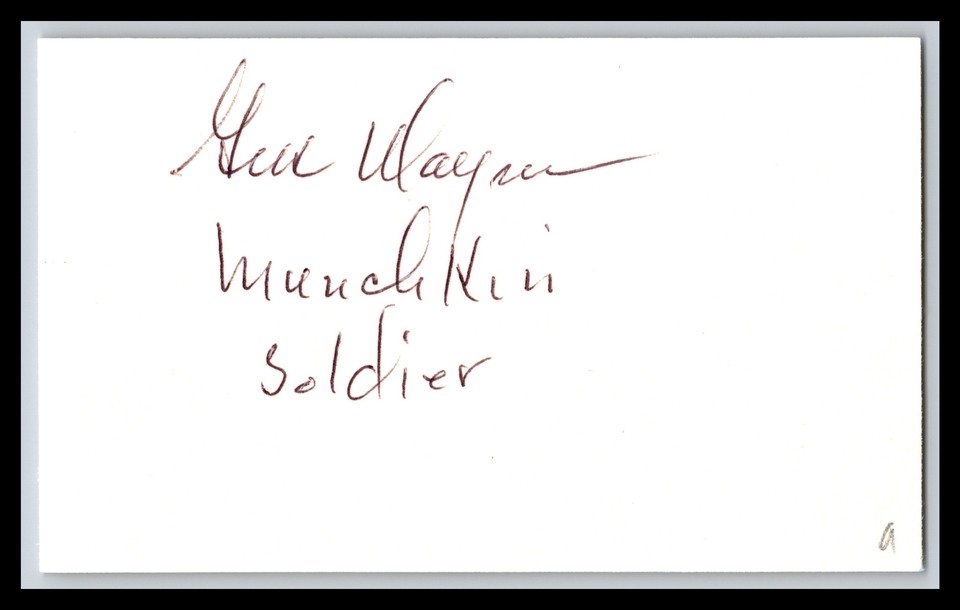 Gus Wayne
Munchkin
Soldier
a